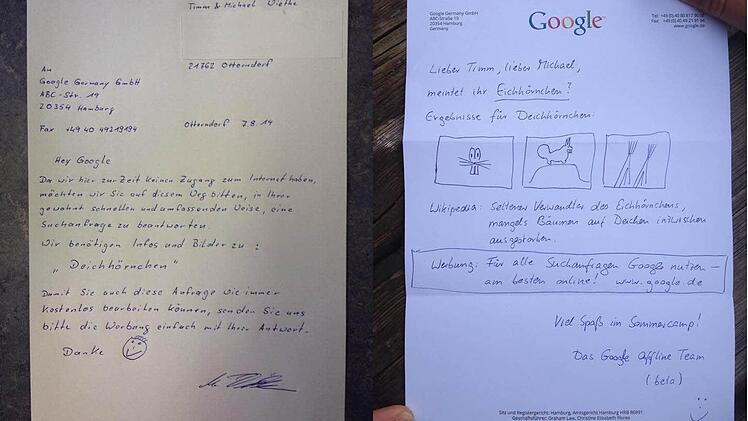 Timm & Michael Wiethe
21762 Otterndorf
An
Google Germany GmbH
ABC-Str. 19
20354 Hamburg
Fax +49 40 49219194
Otterndorf 7.8.14
Hey Google
Da wir hier zur Zeit keinen Zugang zum Internet haben,
möchten wir Sie auf diesem Weg bitten, in Ihrer
gewohnt schnellen und umfassenden Weise, eine
Suchanfrage zu beantworten.
Wir benötigen Infos und Bilder zu :
„Deichhörnchen"
Damit Sie auch diese Anfrage wie immer
kostenlos bearbeiten können, senden Sie uns
bitte die Werbung einfach mit Ihrer Antwort.
Danke
Google Germany GmbH
ABC-Straße 19
20354 Hamburg
Germany
Google
www.google.de
Lieber Timm, lieber Michael,
meintet ihr Eichhörnchen?
Ergebnisse für Deichhörnchen:
Wikipedia: Seltener Verwandter des Eichhörnchens,
mangels Bäumen auf Deichen inzwischen
ausgestorben.
Werbung: Für alle Suchanfragen Google nutzen –
am besten online! www.google.de
Viel Spaß im Sommercamp!
Das Google Offline Team
(beta)
Sitz und Registergericht: Hamburg, Amtsgericht Hamburg HRB 86891
Geschäftsführer: Graham Law, Christine Elizabeth Flores